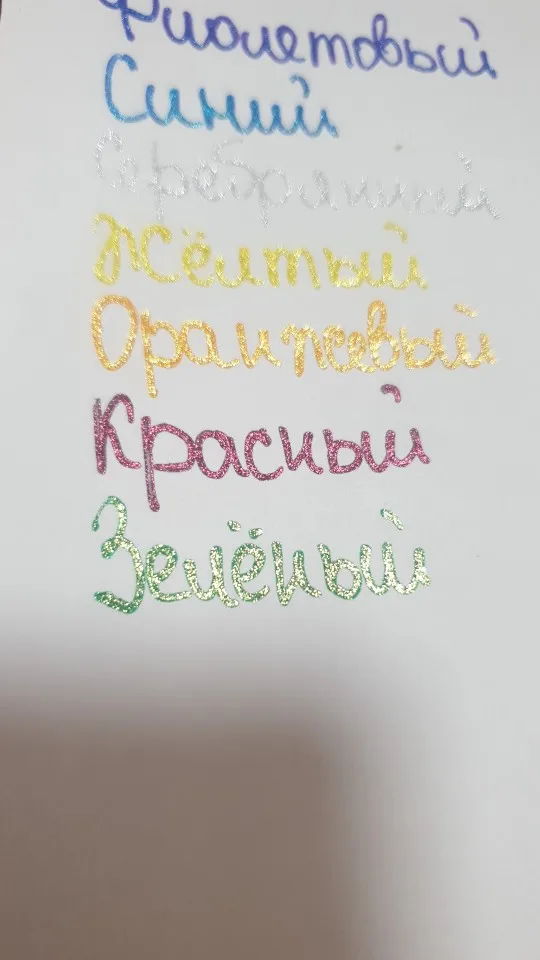 Фиолетовый
Синий
Серебряный
Жёлтый
Оранжевый
Красный
Зелёный